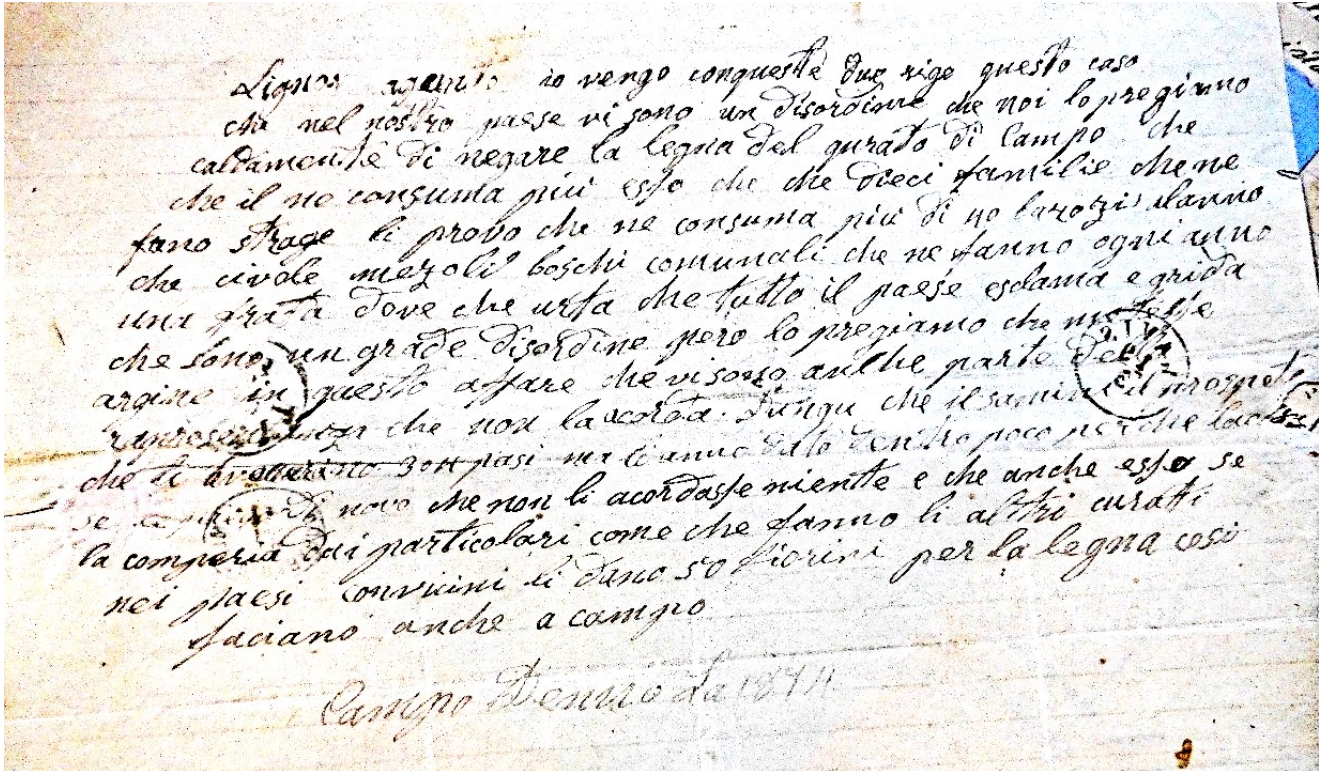 Signor agente io vengo conqueste due rige questo caso
che nel nostro paese vi sono un disordine che noi lo pregianno
caldamente di negare la legna del qurato di Campo che
che il ne consuma più esso che che dieci familie che ne
fano strage li provo che ne consuma più di 40 barozi alanno
che civole mezoli boschi comunali che ne fanno ogni anno
una grata dove che urta che tutto il paese esclama e grida
che sono un grade disordine pero lo pregiamo che metesse
argine in questo affare che vi sono anche parte della
che non la corda. Dunqu che il samini il prospeto
che li 304 pasi ma li anno dato dentro poco perche
se di novo che non li acordasse niente e che anche esso se
la comperia dai particolari come che fanno li altri curatti
nei paesi convicini li dano 50 fiorini per la legna cosi
faciano anche a campo
Campo Denno Li 1874